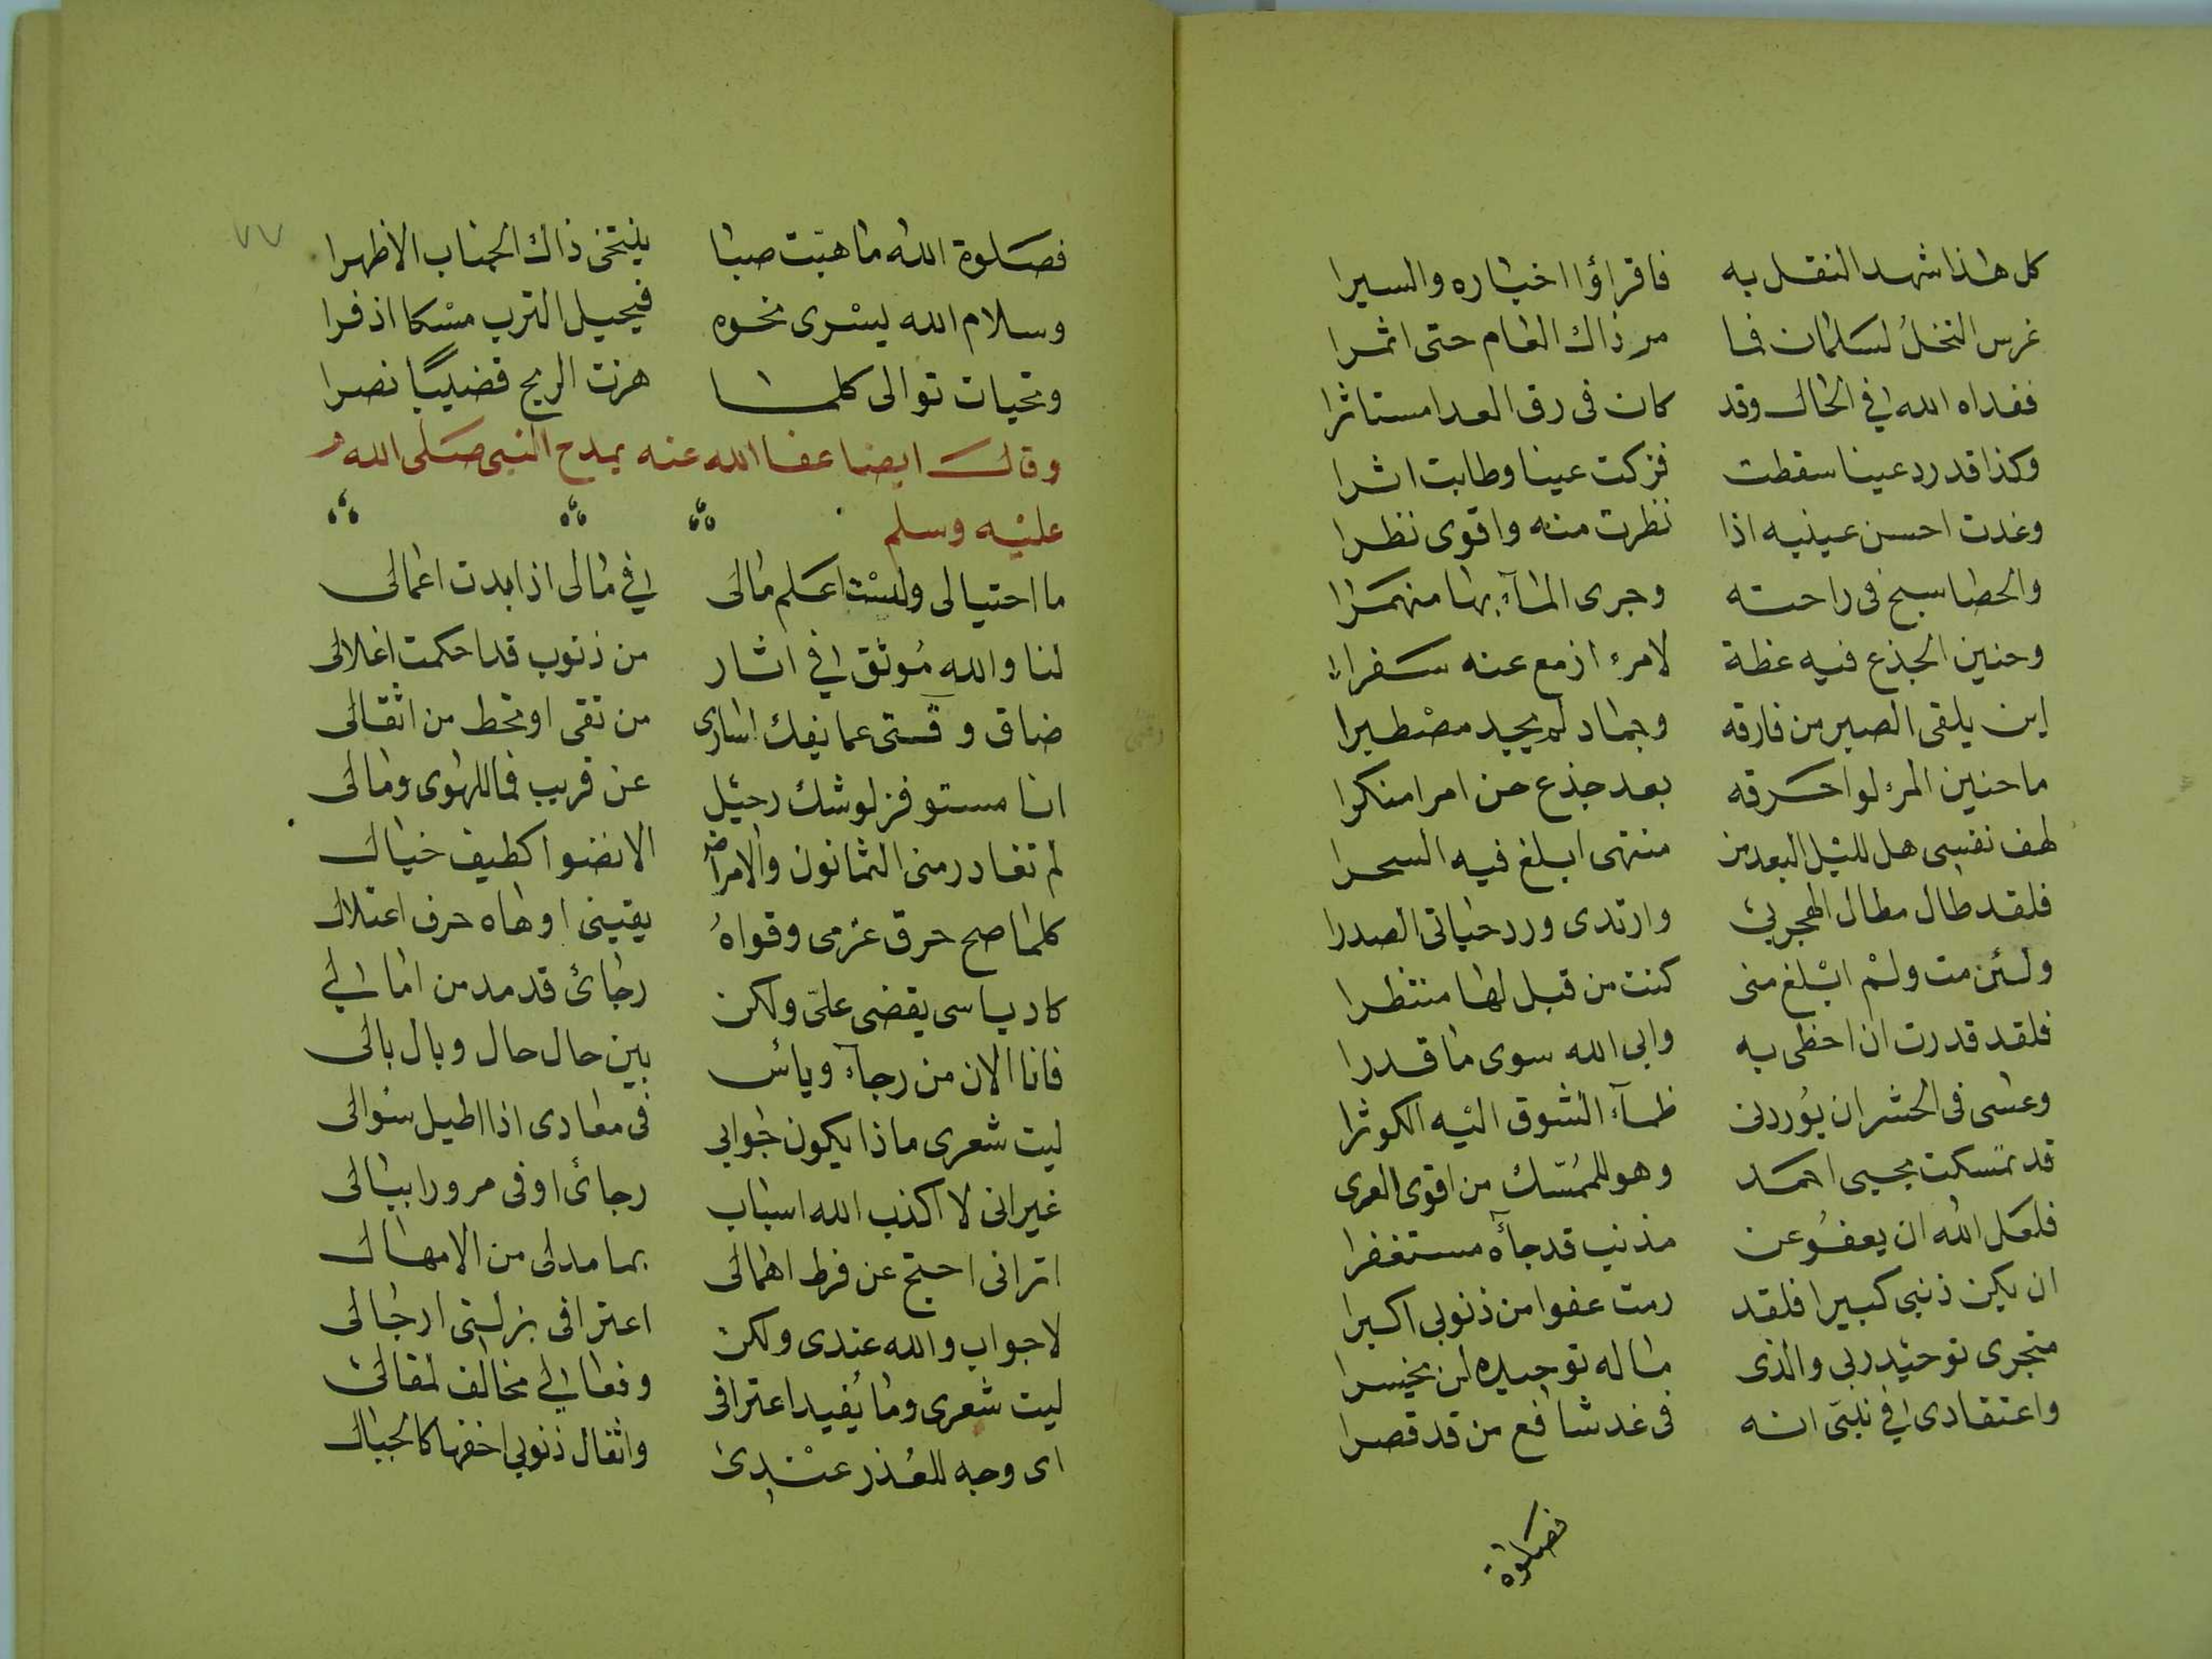 كل هذا شهد النقل به فاقراؤا اخباره والسيرا
غرس النخل لسلمان فما مر ذاك العام حتى اثمرا
ففداه الله في الحال وقد كان فى رق العدا مستاثرا
وكذا قد رد عينا سقطت فزكت عينا وطابت اثرا
وغدت احسن عينيه اذا نظرت منه واقوى نظرا
والحصا سبح فى راحته وجرى المآء بها منهمرا
وحنين الجذع فيه عظة لامرء ازمع عنه سفرا
اين يلقى الصبر من فارقه وجماد لم يجد مصطبرا
ما حنين المرء لو احرقه بعد جذع حن امرا منكرا
لهف نفسى هل لليل البعد من منتهى ابلغ فيه السحرا
فلقد طال مطال الهجر بى وارتدى ورد حياتى الصدرا
ولئن مت ولم ابلغ منى كنت من قبل لها منتظرا
فلقد قدرت ان احظى به وابى الله سوى ما قدرا
وعسى فى الحشر ان يوردنى ظمآء الشوق اليه الكوثرا
قد تمسكت بحبى احمد وهو للممسّك من اقوى العرى
فلعل الله ان يعفو عن مذنب قد جآه مستغفرا
ان يكن ذنبى كبيرا فلقد رمت عفوا من ذنوبى اكبرا
متجرى توحيد ربى والذى ماله توحيده لن يخسرا
واعتقادى في نبيى انه فى غد شافع من قد قصرا
فصلوة
٧٧
فصلوة الله ما هبت صبا ينتحى ذاك الجناب الاطهرا
وسلام الله يسرى نحوه فيحيل الترب مسكا اذفرا
وتحيات توالى كلما هزت الريح قضيبًا نضرا
وقال ايضا عفا الله عنه يمدح النبى صلى الله
عليه وسلم
ما احتيالى ولست اعلم مالى في مالى اذا بدت اعمالى
لنا والله مُوثق في اثار من ذنوب قد احكمت اغلالى
ضاق وقتى عما يفك اسارى من تقى او تحط من اثقالى
انا مستوفز لوشك رحيل عن قريب فما للهوى ومالى
لم تغادر منى الثمانون والامراض الا نضوا كطيف خيال
كلما صح حرق عزمى وقواهُ يقينى اوهاه حرف اعتلال
كاد ياسى يقضى علىّ ولكن رجائ قد مد من امالي
فانا الان من رجآء ويأس بين حال حال وبال بالى
ليت شعرى ماذا يكون جوابى فى معادى اذا اطيل سئوالى
غير انى لا اكذب الله اسباب رجائ اوفى مرورا ببالى
اترانى احتج عن فرط اهمالى بما مد لى من الامهال
لا جواب والله عندى ولكن اعترافى بزلتى ارجالى
ليت شعرى وما يفيد اعترافى وفعالي مخالف لمقالى
اى وجه للعُذر عندى واثقال ذنوبى اخفها كالجبال